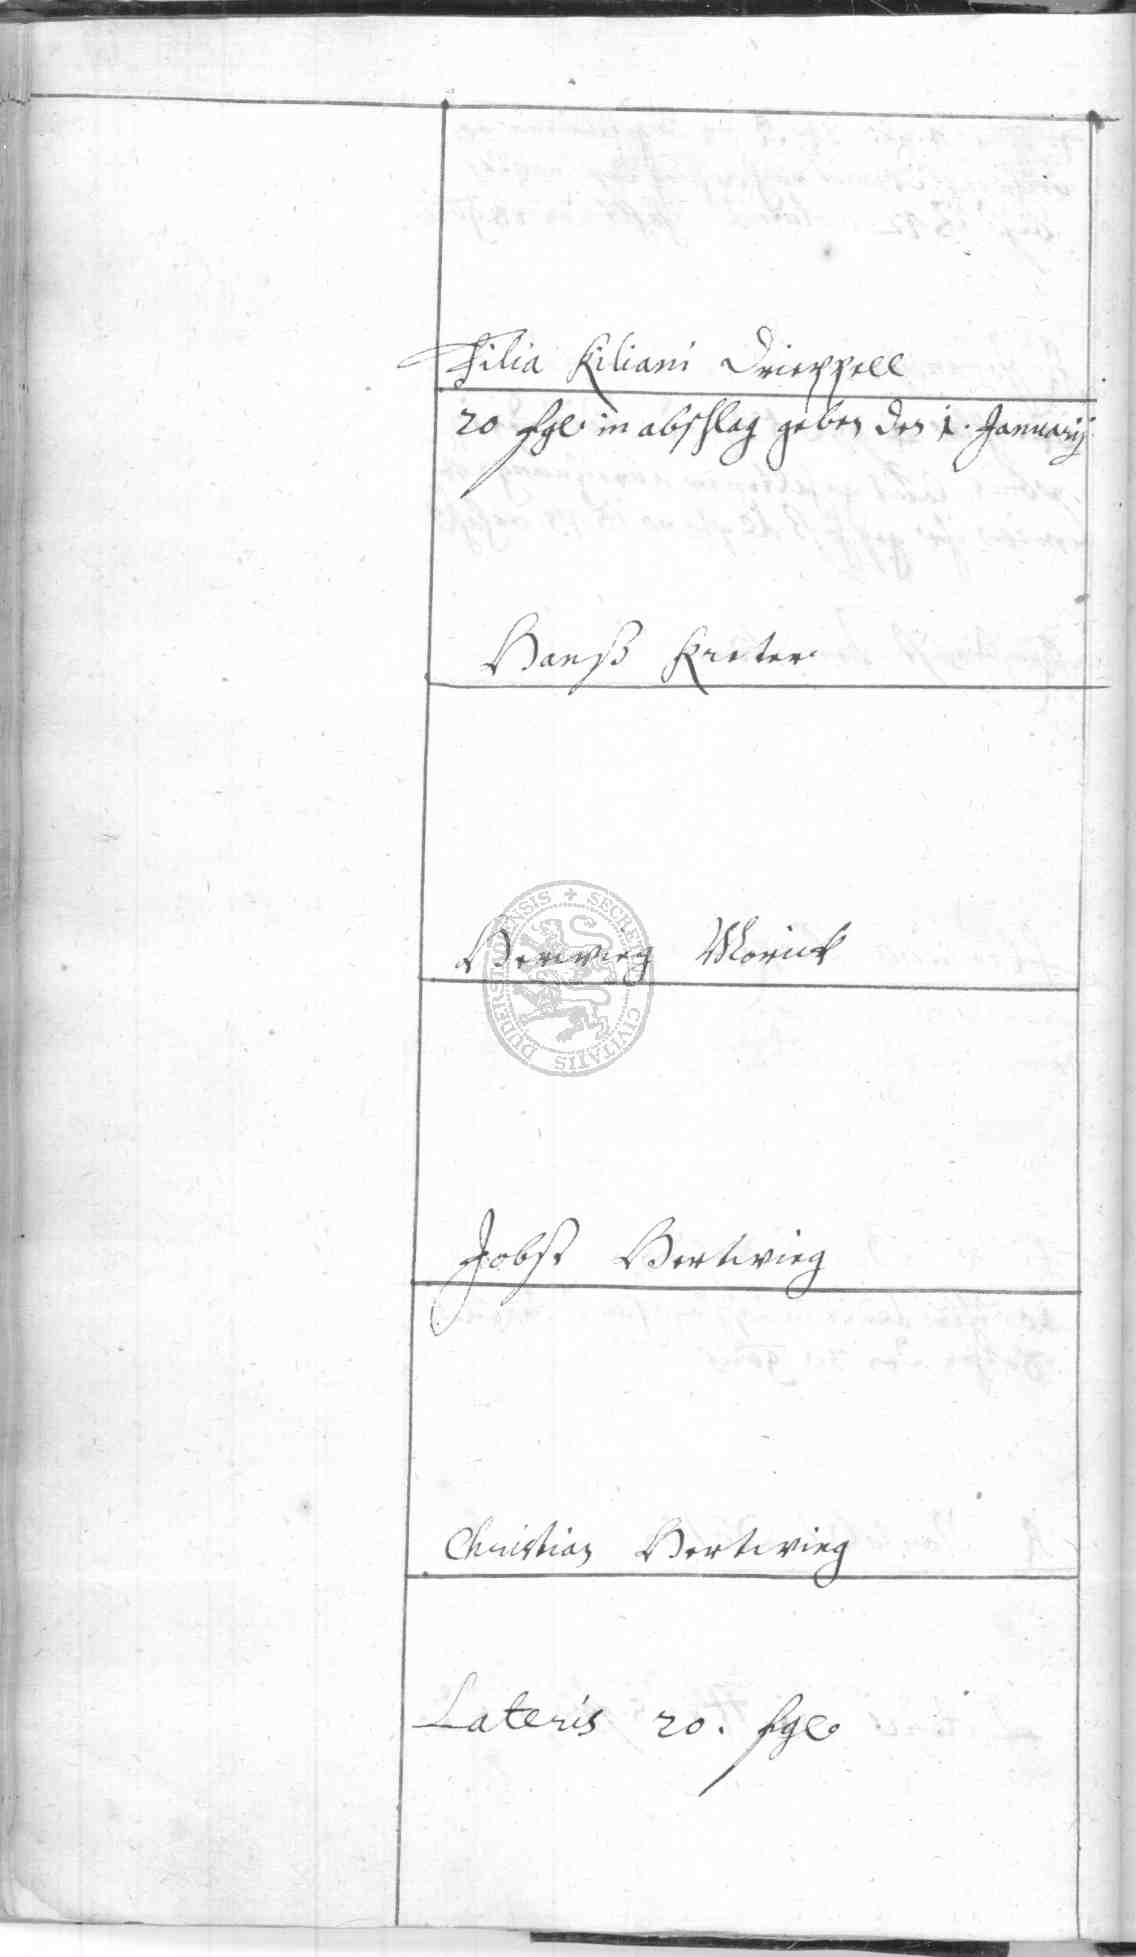 Filia Kiliani Drieppell
20 ßgl. in abschlag geben den 1. Januarij
Hanß Kreter
Hertwieg Morick
Jobst Hertwieg
Christian Hertwieg
Lateris 20. ßgl.
SECRET CIVITATIS DUDERSTADENSIS